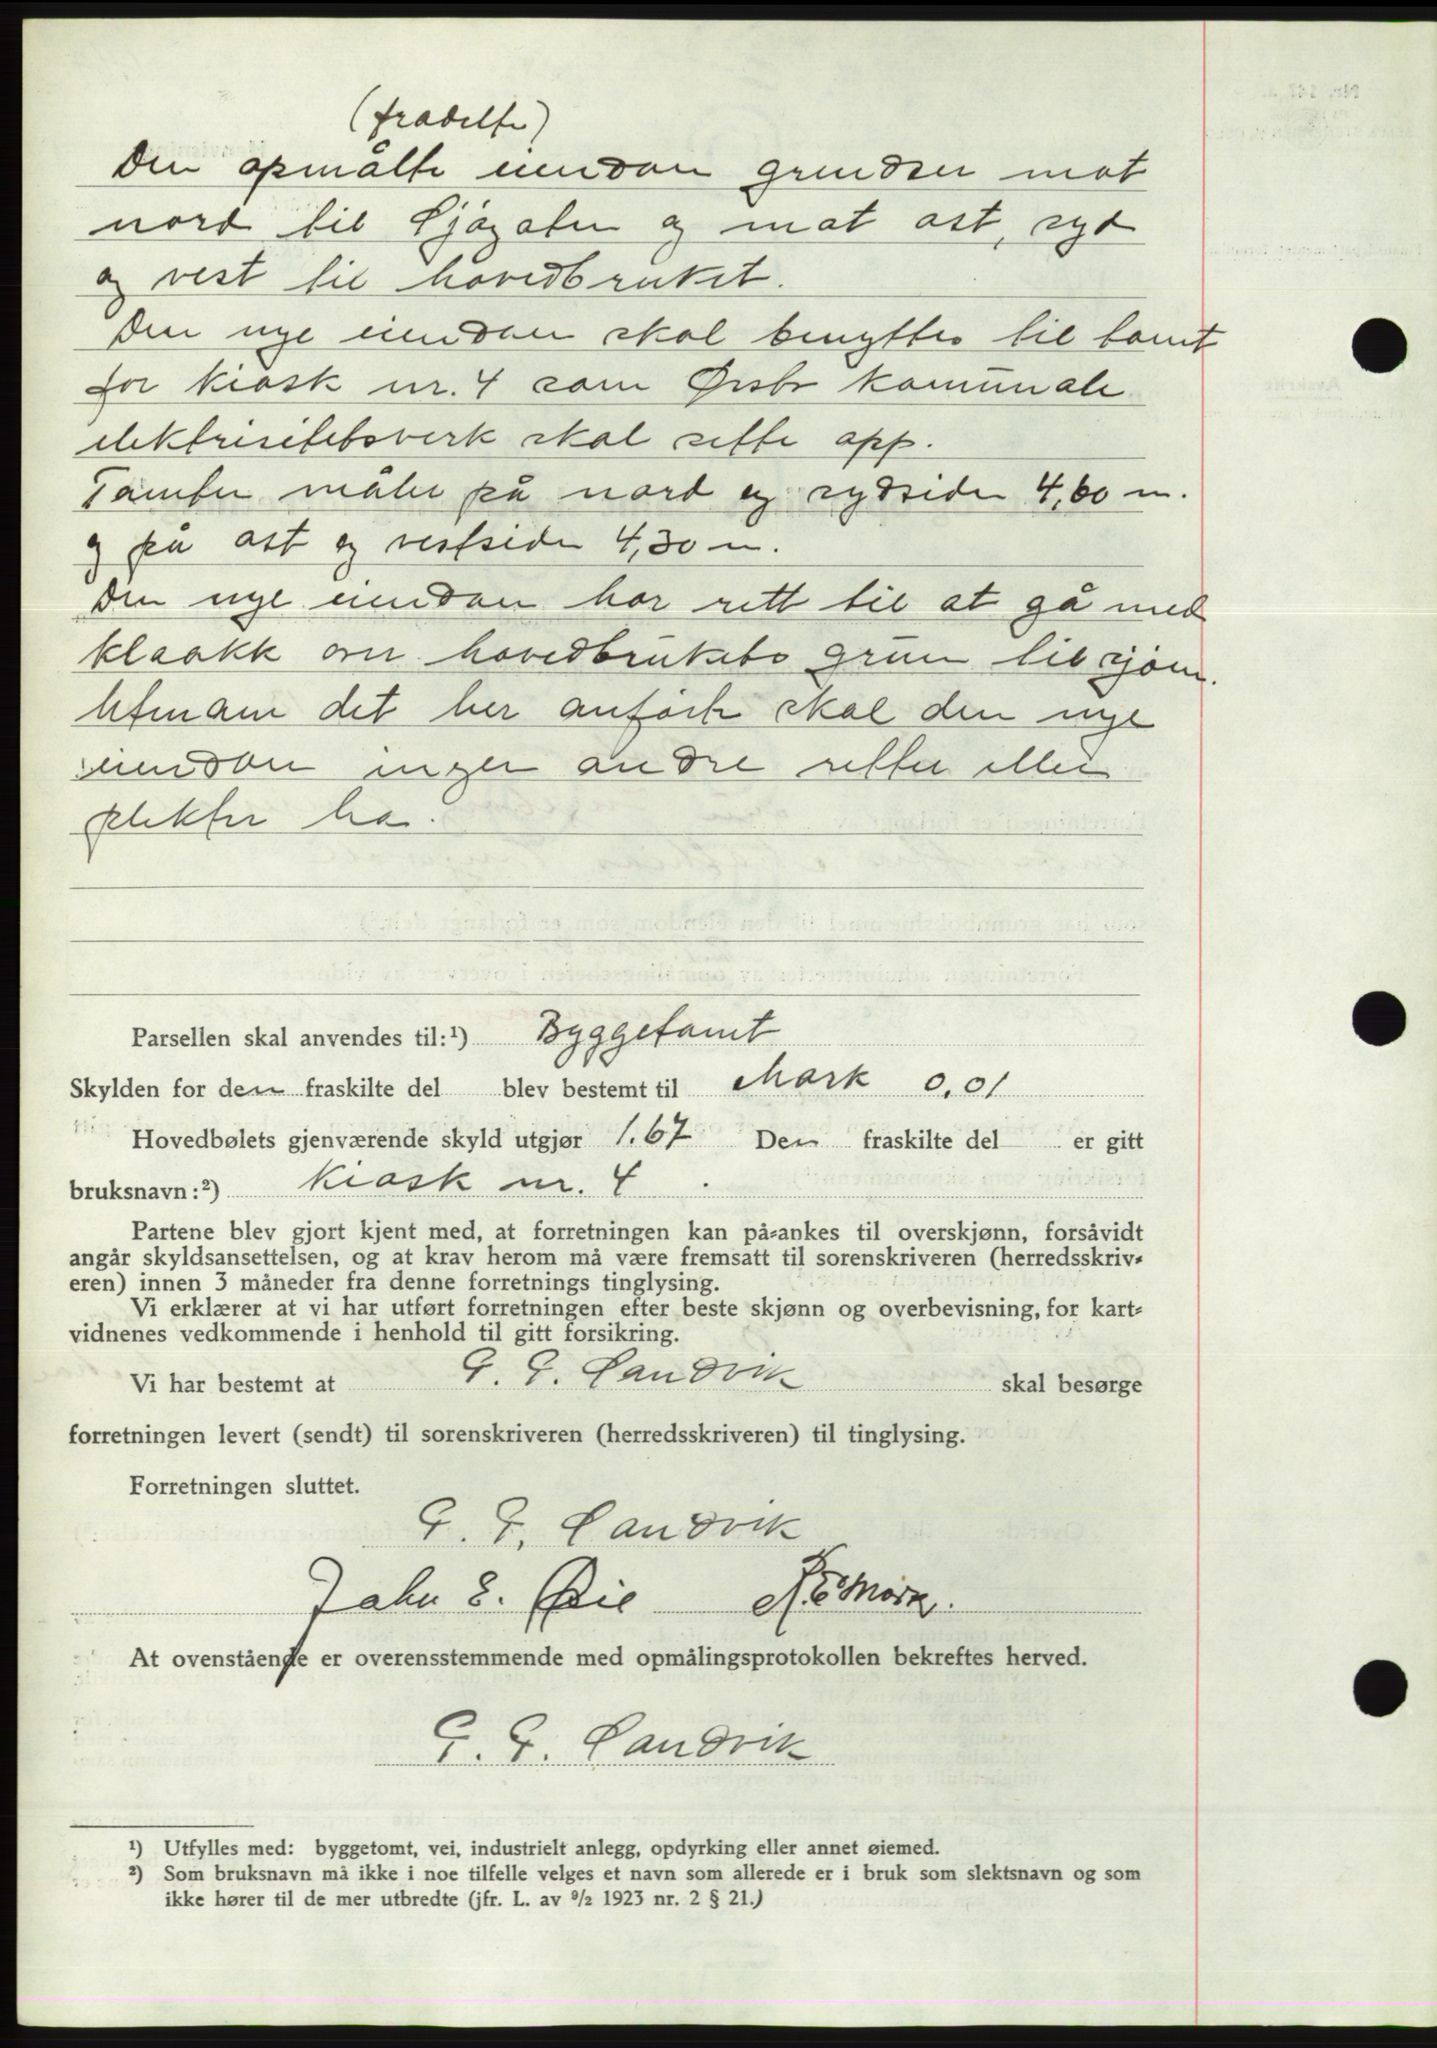 (fradelte)
Den opmålte eiendom grendser mot
nord til Sjøgaten og mot øst, syd
og vest til hovedbruket.
Den nye eiendom skal benyttes til tomt
for kiosk nr. 4 som Ørsta kommunale
elektrisitetsverk skal sette opp.
Tomten måler på nord og sydsiden 4,60 m.
og på øst og vestsiden 4,30 m.
Den nye eiendom har rett til at gå med
kloakk over hovedbrukets grunn til sjøen.
Utenom det her anførte skal den nye
eiendom ingen andre retter eller
plikter ha.
Parsellen skal anvendes til:¹) Byggetomt
Skylden for den fraskilte del blev bestemt til Mark 0,01
Hovedbølets gjenværende skyld utgjør 1.67 Den fraskilte del er gitt
bruksnavn:²) Kiosk nr. 4.
Partene blev gjort kjent med, at forretningen kan på-ankes til overskjønn, forsåvidt
angår skyldsansettelsen, og at krav herom må være fremsatt til sorenskriveren (herredsskriv-
eren) innen 3 måneder fra denne forretnings tinglysing.
Vi erklærer at vi har utført forretningen efter beste skjønn og overbevisning, for kart-
vidnenes vedkommende i henhold til gitt forsikring.
Vi har bestemt at G. G. Sandvik skal besørge
forretningen levert (sendt) til sorenskriveren (herredsskriveren) til tinglysing.
Forretningen sluttet.
G. G. Sandvik
John E. Øie
At ovenstående er overensstemmende med opmålingsprotokollen bekreftes herved.
G. G. Sandvik
¹) Utfylles med: byggetomt, vei, industrielt anlegg, opdyrking eller annet øiemed.
²) Som bruksnavn må ikke i noe tilfelle velges et navn som allerede er i bruk som slektsnavn og som
ikke hører til de mer utbredte (jfr. L. av ⁹/₂ 1923 nr. 2 § 21.)